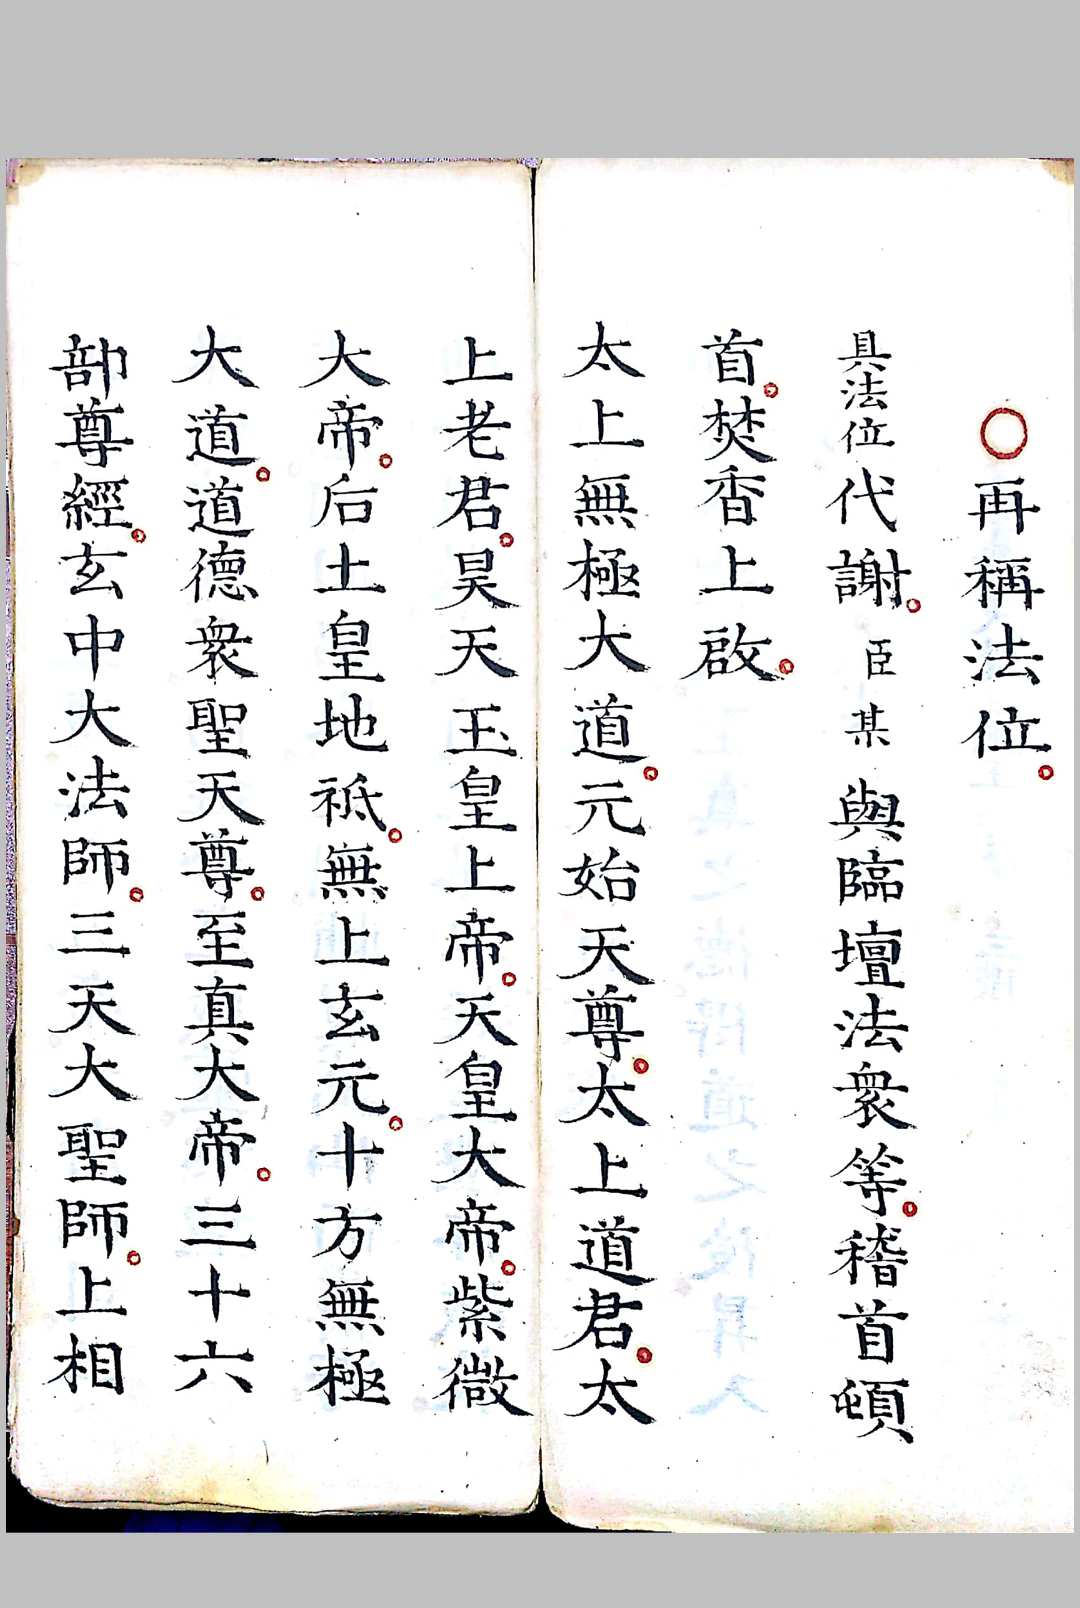 ○再稱法位。
具法位代謝。臣某與臨壇法衆等。稽首頓
首。焚香上啟。
太上無極大道。元始天尊。太上道君。太
上老君。昊天玉皇上帝。天皇大帝。紫微
大帝。后土皇地祇。無上玄元。十方無極
大道。道德衆聖天尊。至真大帝。三十六
部尊經。玄中大法師。三天大聖師。上相